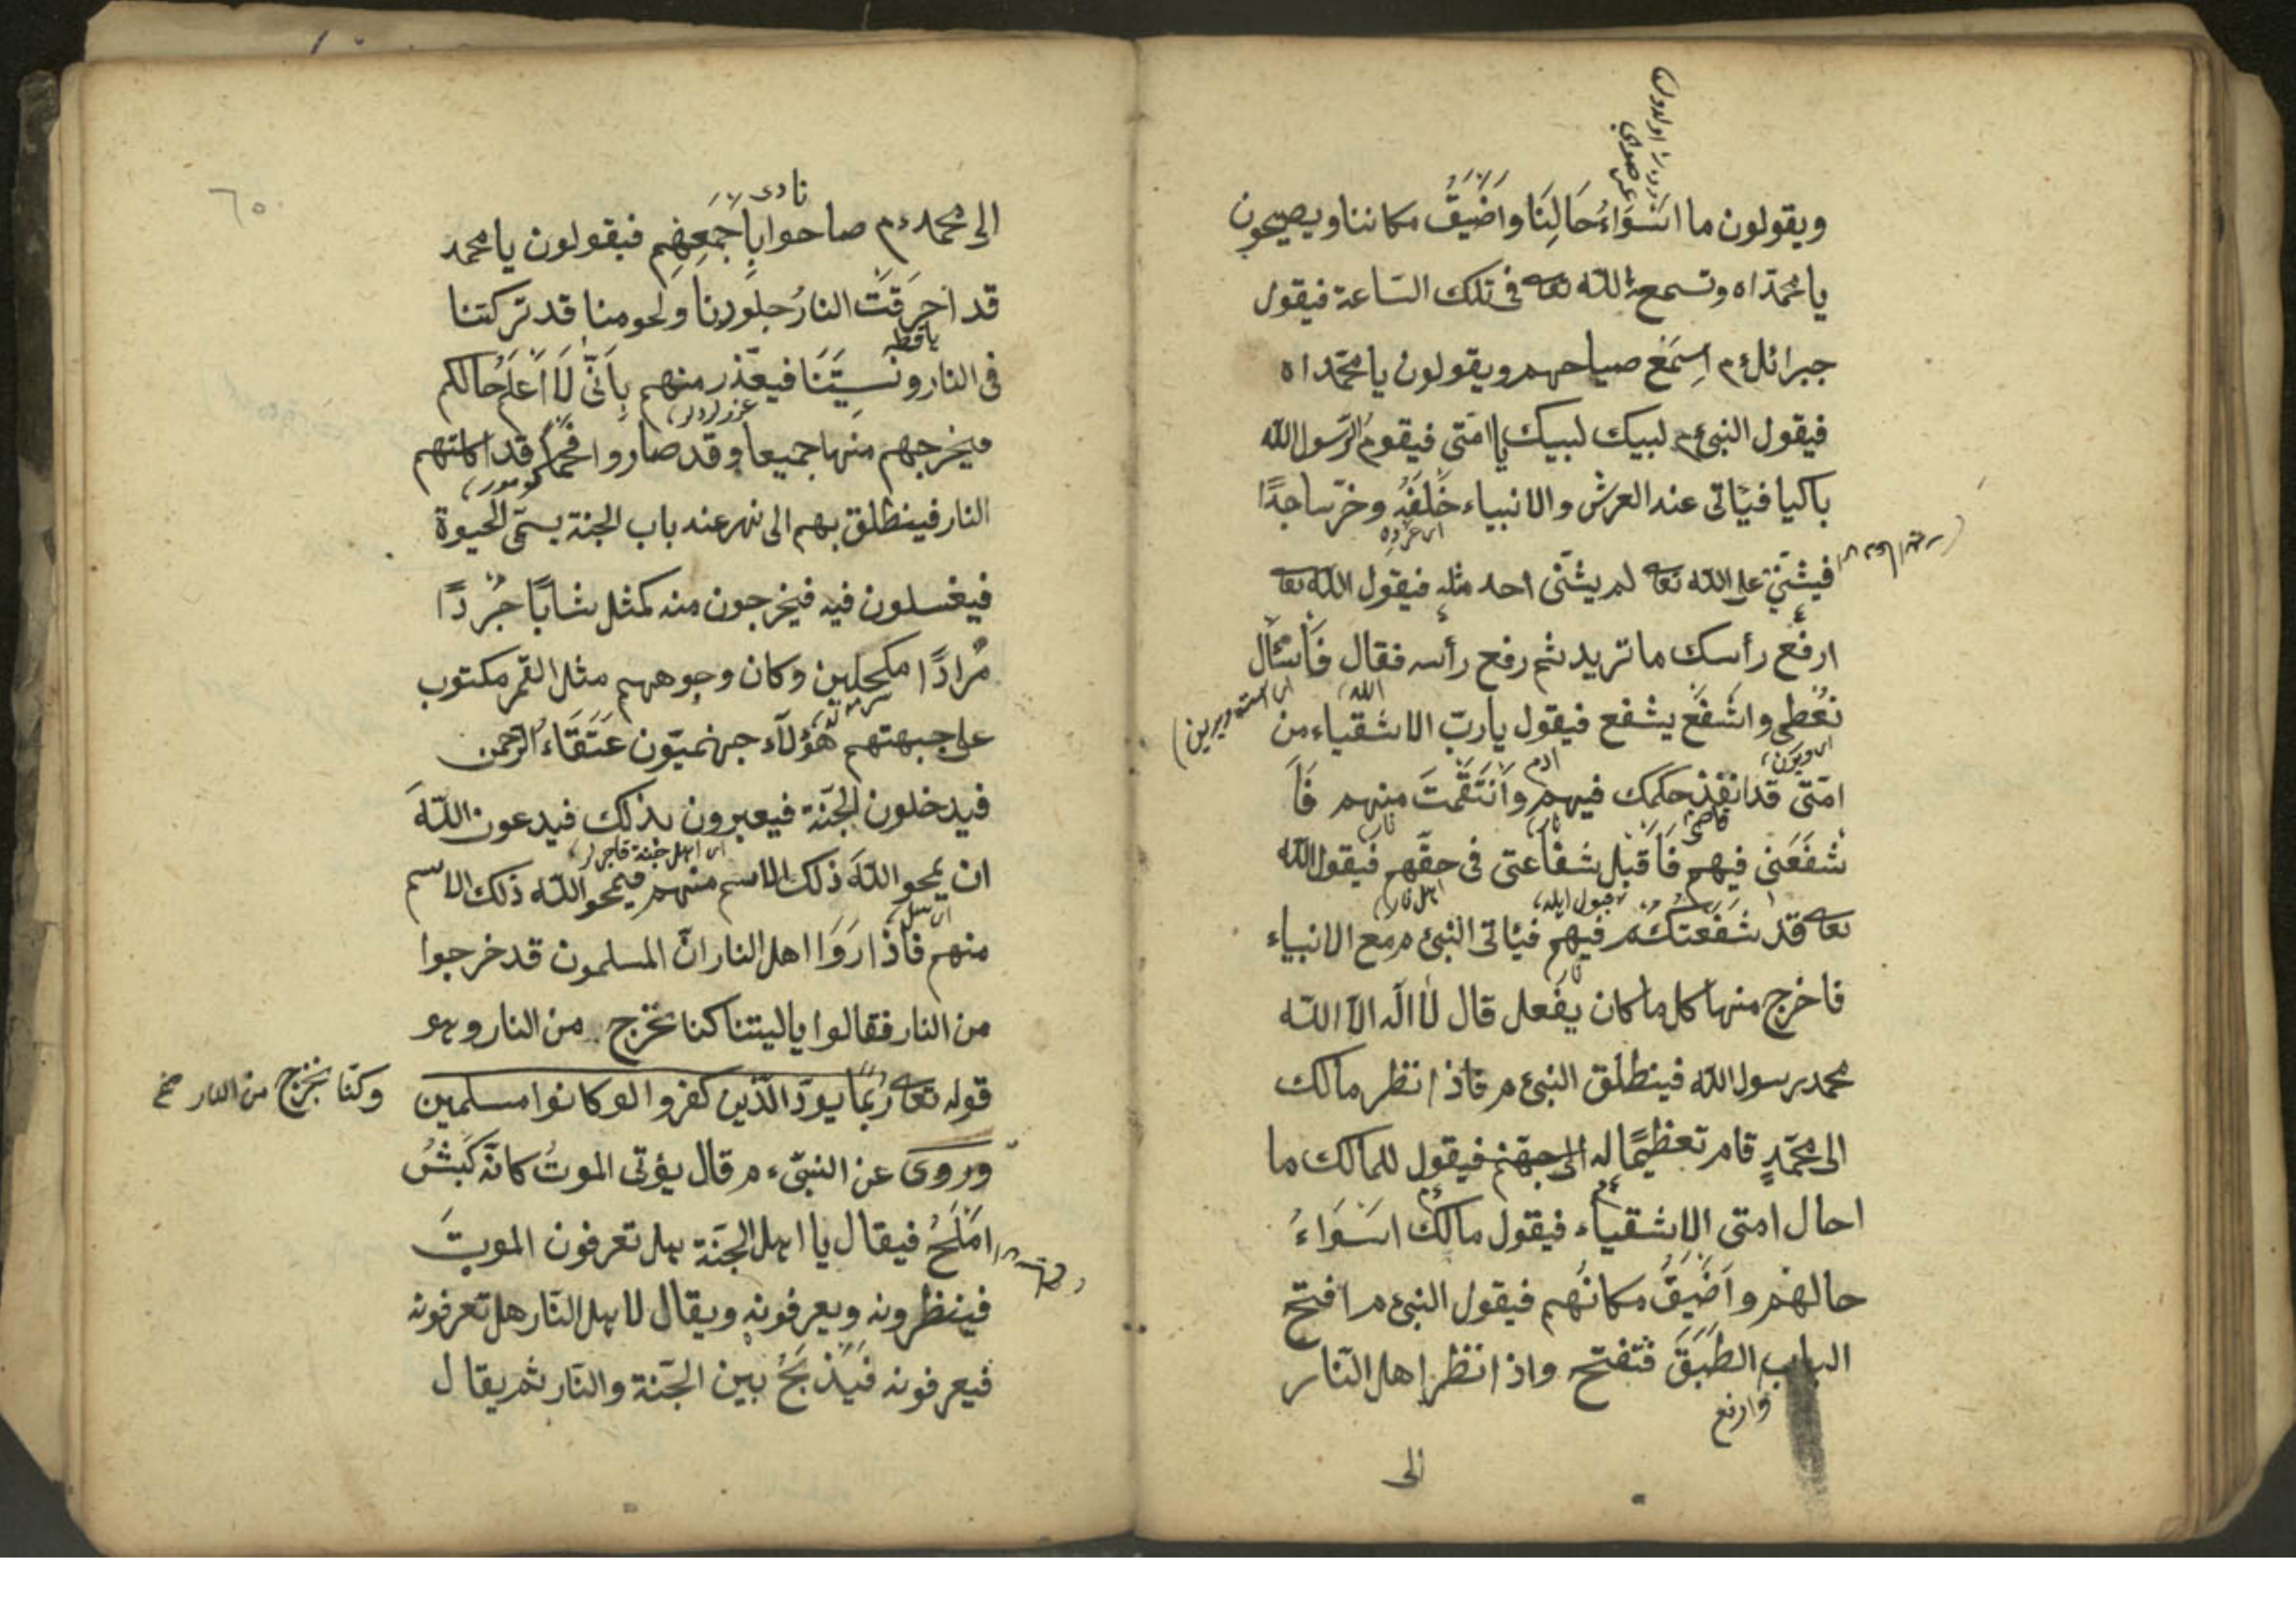 ويقولون ما اَسْوَاءُ حَالِنَا واَضْيَقُ مكاننا ويصيحون
يا محمّداه وتسمع الله تعا فى تلك السّاعة فيقول
جبرائل ءم اِسمَع صياحهم ويقولون يا محمّداه
فيقول النبى ءم لبيك لبيك يا امّتى فيقوم الرّسول الله
باكيا فيأتى عند العرش والانبياء خَلْفَهُ وخرّ ساجدًا
فيثنى على الله تعا لم يثنى احد مثله فيقول الله تعا
ارفع رأسك ما تريد ثم رفع رأسه فقال فَاَسْئَال
نُعْطى واشفَع يشفع فيقول يا ربّ الاشقياء من
امّتى قد انفذ حكمك فيهم وَانتَقَمتَ منهم فَاَ
شْفَعَنى فيهم فَاَقبل شفاعتى فى حقّهم فيقول الله
تعا قد شفعتك فيهم فيأتى النبى ءم مع الانبياء
فاخرج منها كل ما كان يفعل قال لا اله الا الله
محمد رسول الله فينطلق النبى ءم فاذا نظر مالك
الى محمّدٍ قام تعظيمًا له الى جهنم فيقول للمالك ما
احال امتى الاشقياء فيقول مالك اَسْوَاءُ
حالهُم واَضْيَقُ مكانُهم فيقول النبى ءم افتح
الباب الطَبَقَ فتفتح واذا نظر اهل النّار
وارفع
الى
٦٥
نادى
الى محمد ءم صاحوا بِاَجمَعِهِم فيقولون يا محمد
قد اَحرَقَت النارُ جلودنا ولحومنا قد تركتنا
فى النار ونَسِيتَنَا فيعذّر منهم بِاَنّى لَا اَعلَمُ حالكم
فيخرجهم منها جميعا وقد صاروا فحمًا قد اكلتهم
النار فينطلق بهم الى نهر عند باب الجنة يسمّى الحيوة
فيغسلون فيه فيخرجون منه كمثل شابًا جُردًا
مُرادًا مكحلين وكان وجوههم مثل القمر مكتوب
على جبهتهم هؤلآء جهنميّون عَتَقَاءُ الرّحمن
فيدخلون الجنّة فيعيرون بذلك فيدعون اللهَ
ان يمحو اللهَ ذلك الاسم منهم فيمحو الله ذلك الاسم
منهم فاذا رَوَا اهل النار انّ المسلمون قد خرجوا
من النار فقالوا يا ليتنا كنا نخرج من النار وهو
قوله تعا رُبَمَا يودّ الّذين كفروا لو كانوا مسلمين
وكنّا نخرج من النار صح
وروى عن النبىّ ءم قال يؤتى الموتُ كانّه كَبشُ
اَملَحُ فيقال يا اهل الجنّة هل تعرفون الموتَ
فينظرونه ويعرفونه ويقال لاهل النّار هل تعرفونه
فيعرفونه فَيُذبَحُ بين الجنّة والنّار ثم يقال